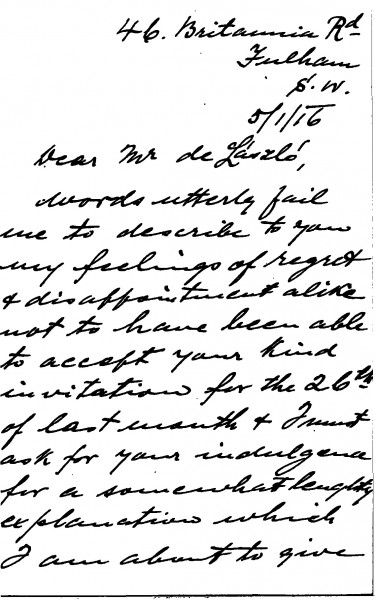 46. Britannia Rd
Fulham
S.W.
5/1/16
Dear Mr de László,
Words utterly fail
me to describe to you
my feelings of regret
& disappointment alike
not to have been able
to accept your kind
invitation for the 26th
of last month & I must
ask for your indulgence
for a somewhat lengthy
explanation which
I am about to give